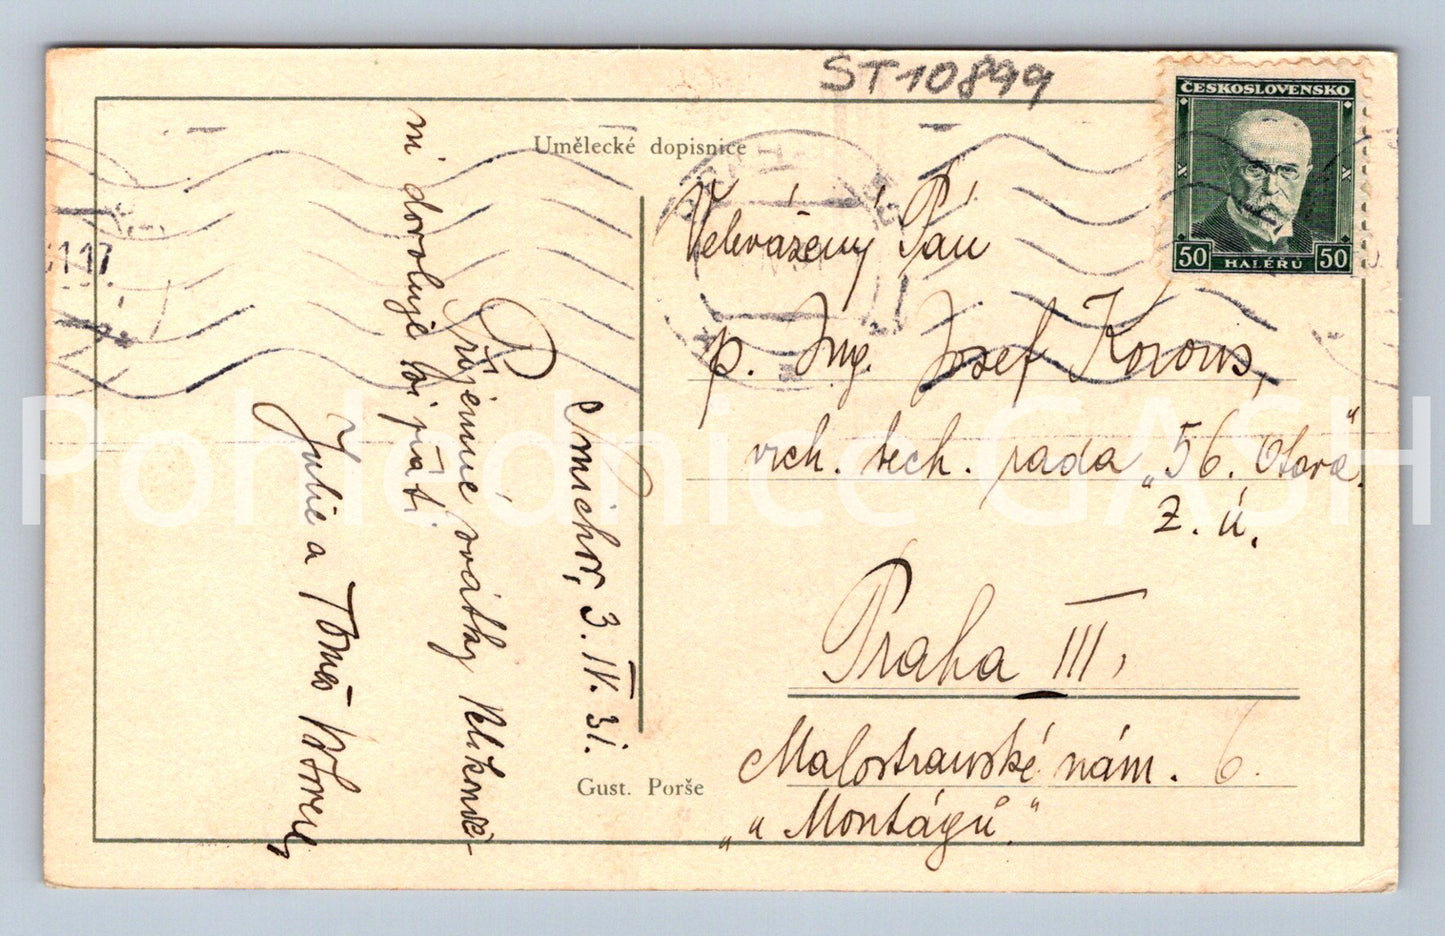 ST10899
Umělecké dopisnice
ČESKOSLOVENSKO
50 HALÉŘŮ 50
Velevážený Pán
p. Ing. Josef Korous,
vrch. tech. rada „56. Otava“
Z. ú.
Praha III,
Malostranské nám. 6.
„u Montágů.“
Smíchov, 3. IV. 31.
Příjemné svátky Velikonoč-
ní dovoluje si přáti
Julie a Tomáš
Gust. Porše
Pohlednice GASH